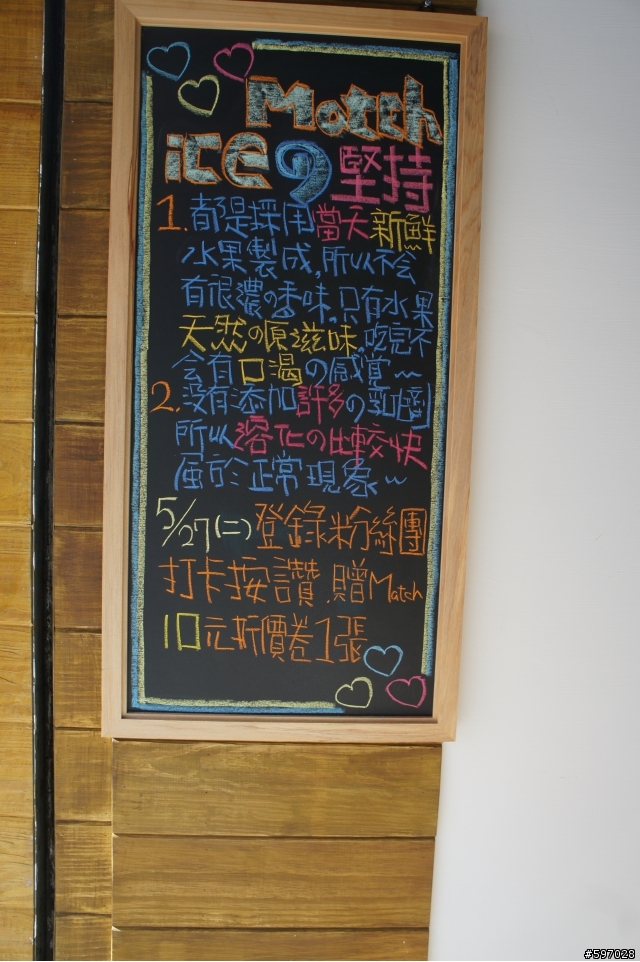 Match
ice の 堅持
1. 都是採用當天新鮮
水果製成,所以不會
有很濃の香味,只有水果
天然の原滋味,吃完不
會有口渴の感覺~
2. 沒有添加許多の乳化劑
所以溶化の比較快
屬於正常現象~
5/27(二)登錄粉絲團
打卡按讚 贈Match
10元折價卷1張
#597028